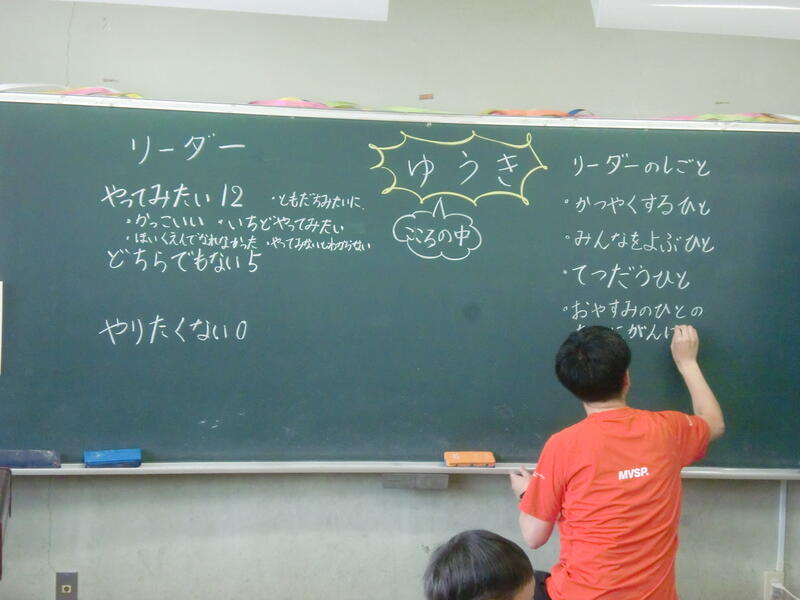 リーダー
やってみたい 12 ・ともだちみたいに、
・かっこいい ・いちどやってみたい
・ほいくえんでなれなかった ・やってみないとわからない
どちらでもない 5
やりたくない 0
ゆうき
こころの中
リーダーのしごと
・かつやくするひと
・みんなをよぶひと
・てつだうひと
・おやすみのひとの
にがんば
MVSP.